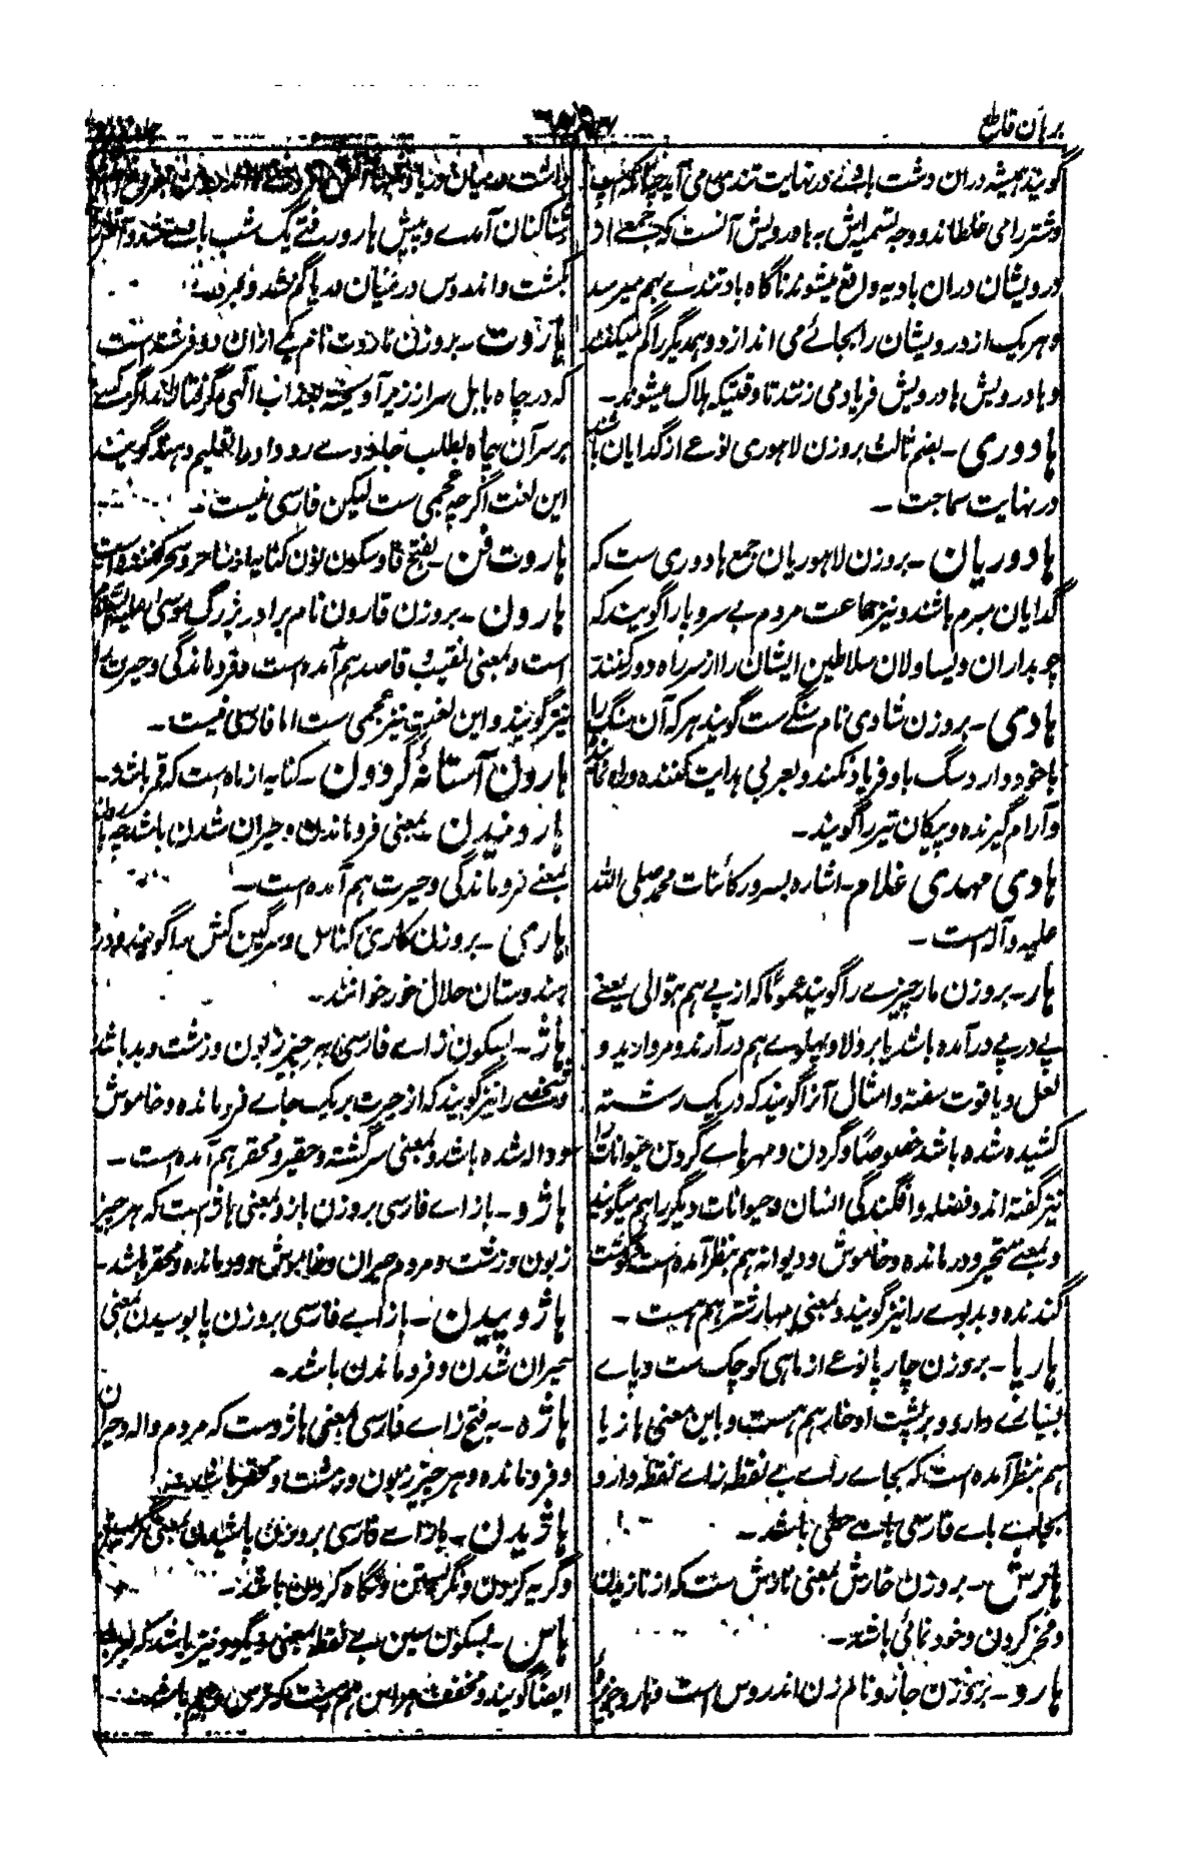 برہان قاطع
گویند ہمیشہ دران دشت بادے در نہایت تندی می آید چنانکہ
وشتر را می غلطاند و وجہ تسمیہ اش بہ ہادرویش آنست کہ جمعے از
درویشان دران بادیہ واقع میشوند ناگاہ باد تندے بہم میرسد
و ہر یک از درویشان را بجائے می اندازد و ہمدیگر را گم میکنند
و ہادرویش ہادرویش فریاد می زنند تا وقتیکہ ہلاک میشوند۔
ہادوری۔ بضم ثالث بروزن لاہوری نوعے از گدایان باشند
در نہایت سماجت۔
ہادوریان۔ بروزن لاہوریان جمع ہادوری ست کہ
گدایان مبرم باشند و نیز جماعت مردم بے سر و پا را گویند کہ
چوبداران و یساولان سلاطین ایشان را از سر راہ دور کنند
ہادی۔ بروزن شادی نام سنگے ست گویند ہر کہ آن سنگ را
با خود دارد سگ باو فریاد نکند و بعربی ہدایت کنندہ و راہ نما
و آرام گیرندہ و پیکان تیر را گویند۔
ہادی مہدی غلام۔ اشارہ بسرور کائنات محمد صلی اللہ
علیہ و آلہ است۔
ہار۔ بروزن مار چیزے را گویند عموماً کہ از پے ہم متوالی یعنے
پے در پے در آمدہ باشد یا بر دلا و پہلوے ہم در آرند و مروارید و
لعل و یاقوت سفتہ و امثال آنرا گویند کہ در یک رشتہ
کشیدہ شدہ باشد خصوصاً و گردن و مہرہاے گردن حیوانات را
نیز گفتہ اند و فضلہ و افگندگی انسان و حیوانات دیگر را ہم میگویند
و بمعنے متحیر و درماندہ و خاموش و دیوانہ ہم بنظر آمدہ است و گوشت
گندندہ و بدبوے را نیز گویند و بمعنی مہار شتر ہم ہست۔
ہارپا۔ بروزن چارپا نوعے از ماہی کوچک ست و پاے
بسیارے دارد و بر پشت او خار ہم ہست و باین معنی ہازیا
ہم بنظر آمدہ است کہ بجاے راے بے نقطہ زاے نقطہ دار و
بجاے باے فارسی یاے حطی باشد۔
ہارش۔ بروزن خارش بمعنی نازش ست کہ از نازیدن
و فخر کردن و خود نمائی باشد۔
ہارو۔ بروزن جارو نام زن اندروس است و ہارو جزیرہ
داشت در میان دریا
شناکنان آمدے و پیش ہارو رفتے یک شب باد
بکشت و اندروس در میان دریا گم شد و بمرد۔
ہاروت۔ بروزن ناروت نام یکے از ان دو فرشتہ است
کہ در چاہ بابل سرازیر آویختہ بعذاب الٰہی گرفتار اند اگر کسے
بر سر آن چاہ بطلب جادوے رود او را تعلیم دہند گویند
این لغت اگرچہ عجمی ست لیکن فارسی نیست۔
ہاروت فن۔ بفتح فا و سکون نون کنایہ از ساحر و سحر کنندہ است
ہارون۔ بروزن قارون نام برادر بزرگ موسیٰ علیہ السلام
است و بمعنی نقیب و قاصد ہم آمدہ است و فروماندگی و حیرت را
نیز گویند و این لغت نیز عجمی ست اما فارسی نیست۔
ہارون آستانہ گردون۔ کنایہ از ماہ است کہ قمر باشد۔
ہارونیدن۔ بمعنی فروماندن و حیران شدن باشد چہ ہارون
بمعنے فروماندگی و حیرت ہم آمدہ است۔
ہاری۔ بروزن کاری کناس و سرگین کش را گویند و در
ہندوستان حلال خور خوانند۔
ہاژ۔ بسکون زاے فارسی ہر چیز زبون و زشت و بد باشد
و شخصے را نیز گویند کہ از حیرت بر یک جاے فروماندہ و خاموش
و والہ شدہ باشد و بمعنی سرگشتہ و حقیر و محقر ہم آمدہ است۔
ہاژو۔ با زاے فارسی بروزن بازو بمعنی ہاژ است کہ ہر چیز
زبون و زشت و مردم حیران و خاموش و درماندہ و محقر باشد۔
ہاژوییدن۔ با زاے فارسی بروزن پابوسیدن بمعنی
حیران شدن و فروماندن باشد۔
ہاژہ۔ بہ فتح زاے فارسی بمعنی ہاژوست کہ مردم والہ و حیران
و فروماندہ و ہر چیز زبون و زشت و محقر باشد۔
ہاژیدن۔ با زاے فارسی بروزن پاشیدن بمعنی گریستن
و گریہ کردن و نگریستن و نگاہ کردن باشد۔
ہاس۔ بسکون سین بے نقطہ بمعنی دیگر و نیز باشد کہ بعربی
ایضاً گویند و مخفف ہراس ہم ہست کہ ترس و بیم باشد۔